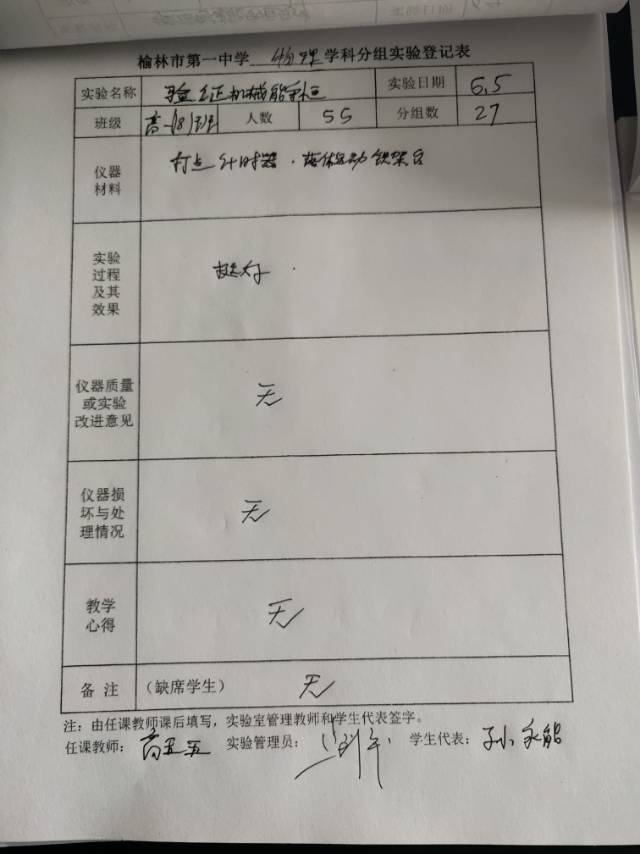 榆林市第一中学 物理 学科分组实验登记表
实验名称 验证机械能守恒 实验日期 6.5
班级 高一(8)班 人数 55 分组数 27
仪器
材料
打点计时器. 铁架台
实验
过程
及其
效果
挺好.
仪器质量
或实验
改进意见
无
仪器损
坏与处
理情况
无
教学
心得
无
备 注 (缺席学生) 无
注: 由任课教师课后填写, 实验室管理教师和学生代表签字。
任课教师: 实验管理员: 学生代表: